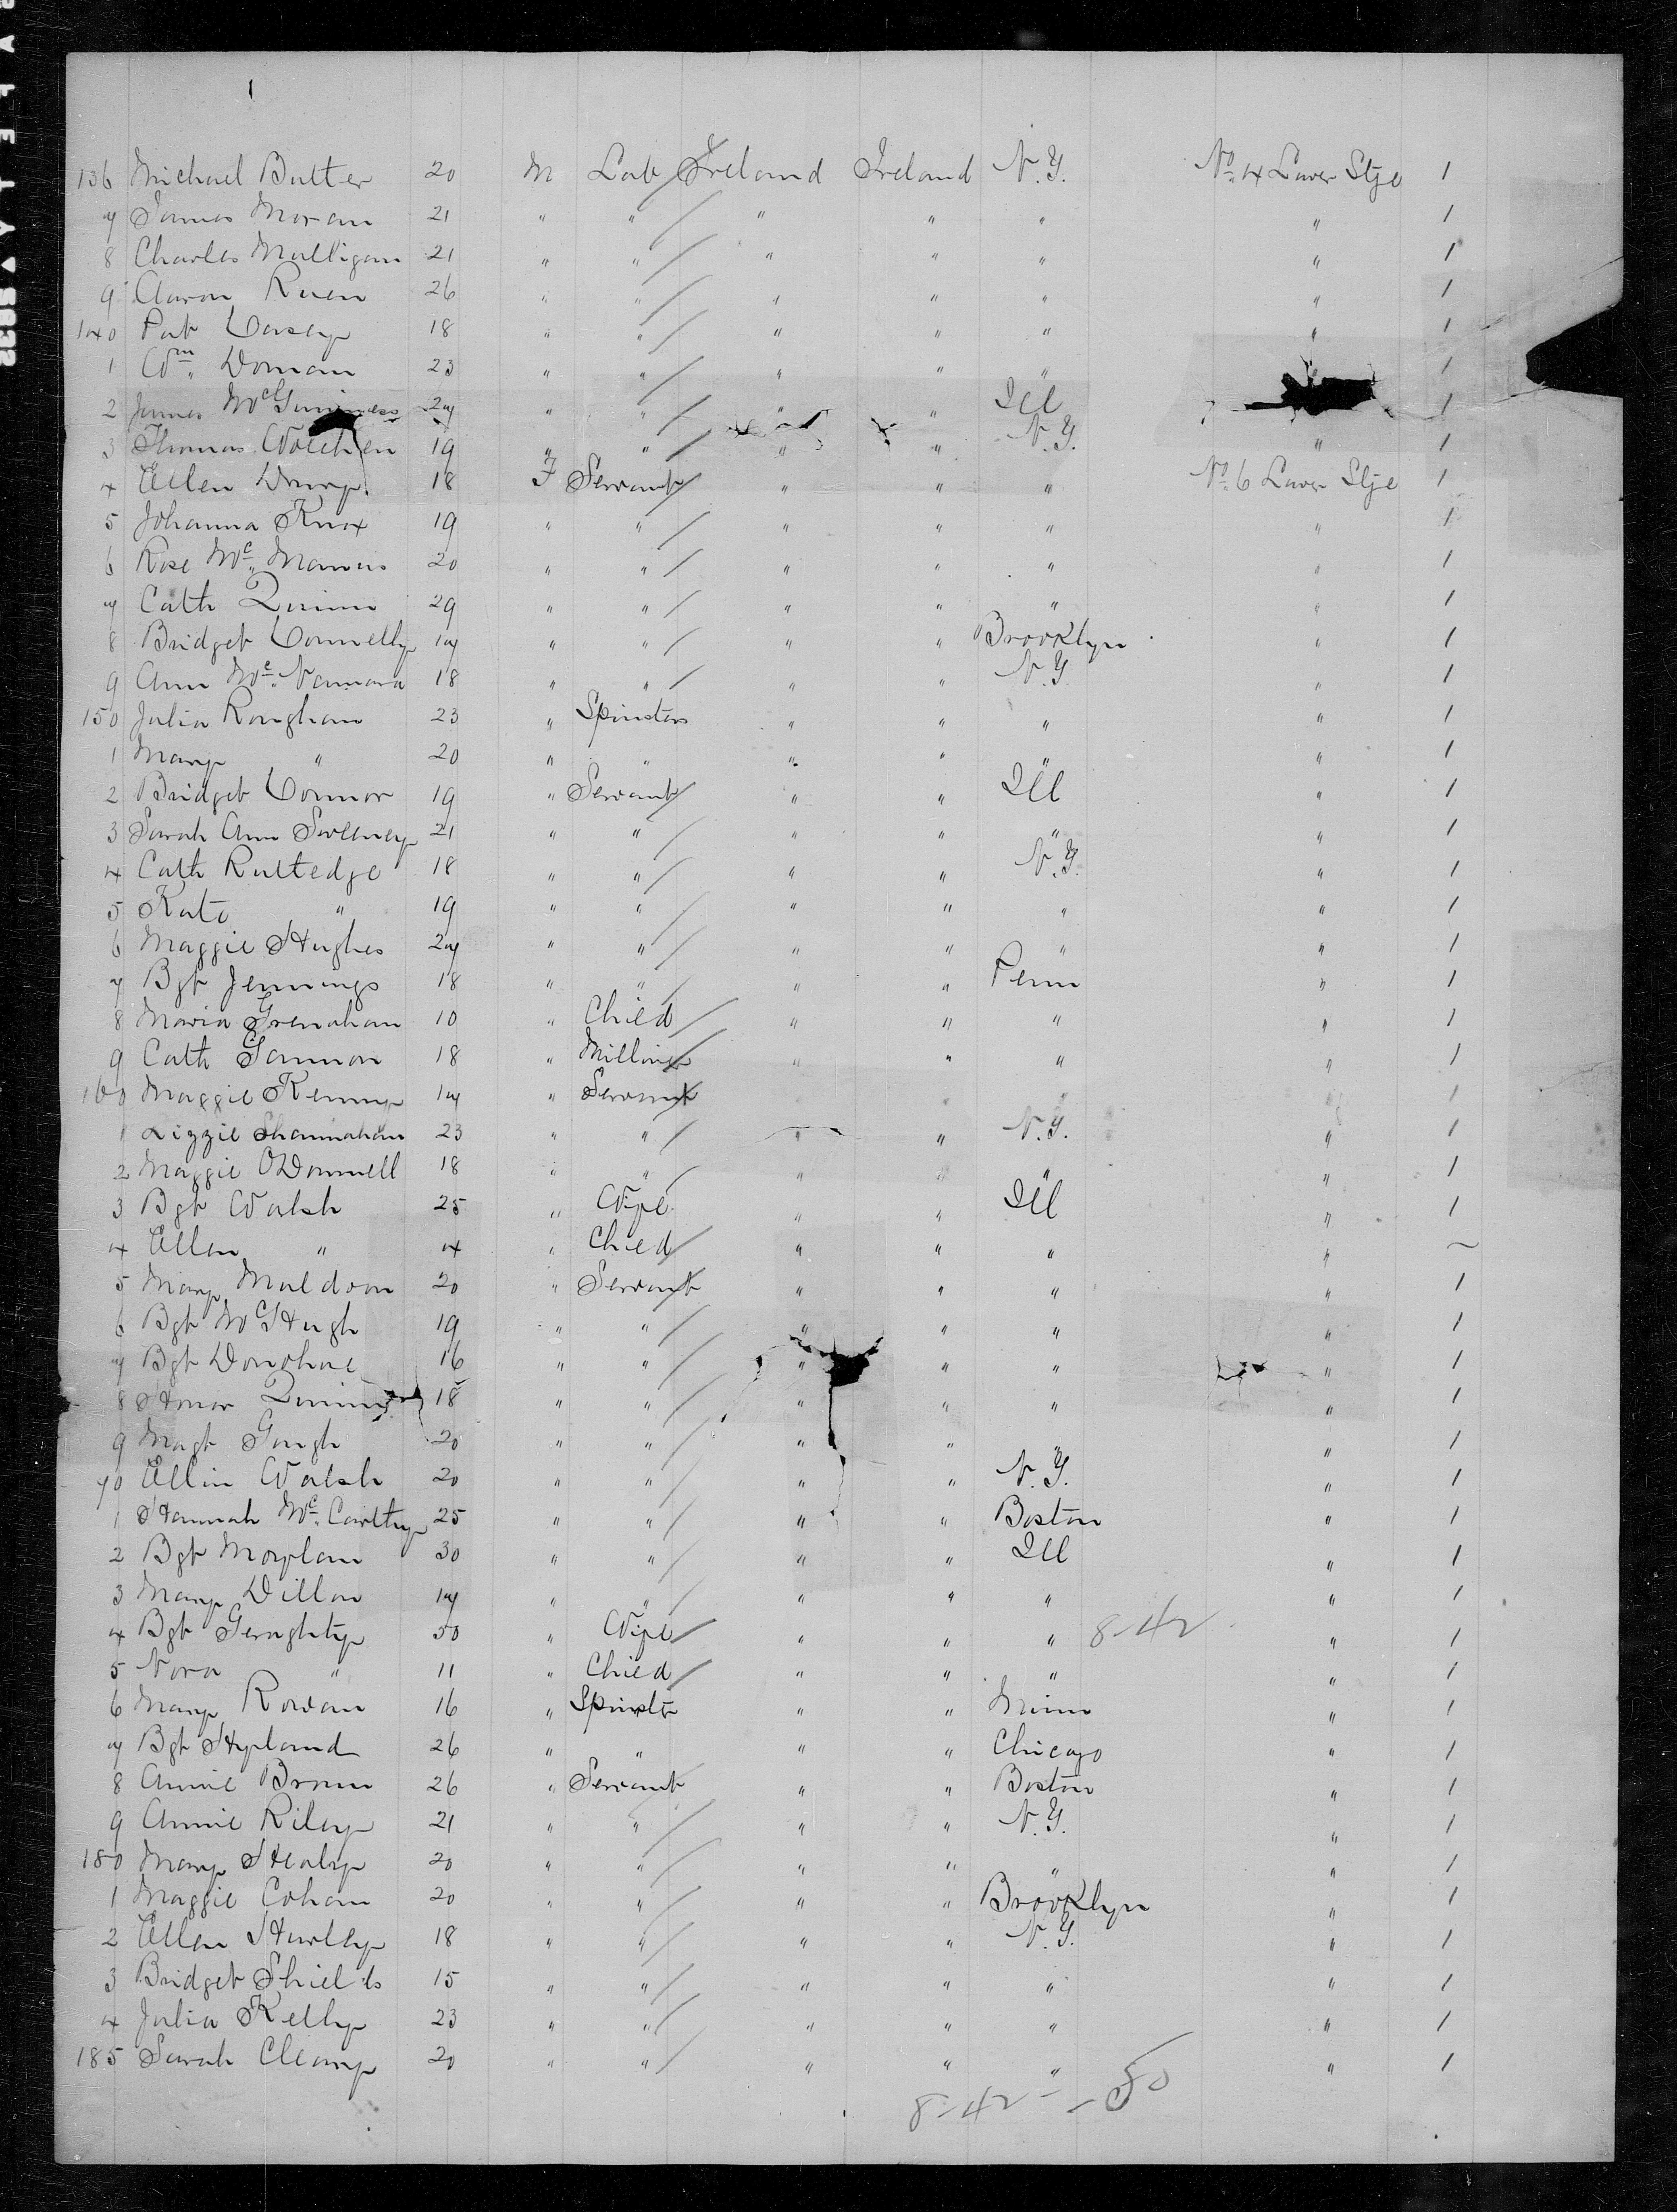 136 Michael Butler 20 M Lab Ireland Ireland N.Y. No 4 Lower Stge 1
7 James Moran 21 " " " " " " 1
8 Charles Mulligan 21 " " " " " " 1
9 Aaron Ruen 26 " " " " " " 1
140 Pat Casey 18 " " " " " " 1
1 Wm Doman 23 " " " " " 1
2 James McGuinness 27 " " " " Ill 1
3 Thomas 19 " " " " N.Y. " 1
4 Ellen Drury 18 F Servant " " " No 6 Lower Stge 1
5 Johanna Knox 19 " " " " " " 1
6 Rose Mc Manus 20 " " " " " " 1
7 Cath Quinn 29 " " " " " " 1
8 Bridget Connelly 17 " " " " Brooklyn " 1
9 Ann Mc Namara 18 " " " " N.Y. " 1
150 Julia Roughan 23 " Spinsters " " " " 1
1 Mary " 20 " " " " " " 1
2 Bridget Connor 19 " Servant " " Ill " 1
3 Sarah Ann Sweeney 21 " " " " " " 1
4 Cath Rutledge 18 " " " " N.Y. " 1
5 Kate " 19 " " " " " " 1
6 Maggie Hughes 27 " " " " " " 1
7 Bgt Jennings 18 " " " " Penn " 1
8 Maria Grenahan 10 " Child " " " " 1
9 Cath Gannon 18 " Milliner " " " " 1
160 Maggie Kenny 17 " Servant " " " " 1
1 Lizzie Shannahan 23 " " " " N.Y. " 1
2 Maggie ODonnell 18 " " " " " " 1
3 Bgt Walsh 25 " Wife " " Ill " 1
4 Ellen " 4 " Child " " " " ~
5 Mary Muldoon 20 " Servant " " " " 1
6 Bgt McHugh 19 " " " " " " 1
7 Bgt Donohoe 16 " " " " " " 1
8 Honor Quinn 18 " " " " " " 1
9 Magt Gough 20 " " " " " " 1
70 Ellin Walsh 20 " " " " N.Y. " 1
1 Hannah Mc Carthy 25 " " " " Boston " 1
2 Bgt Moylan 30 " " " " Ill " 1
3 Mary Dillon 17 " " " " " " 1
4 Bgt Geraghty 50 " Wife " " " 8-42 " 1
5 Nora " 11 " Child " " " " 1
6 Mary Rowan 16 " Spinster " " Minn " 1
7 Bgt Hyland 26 " " " " Chicago " 1
8 Annie Brown 26 " Servant " " Boston " 1
9 Annie Riley 21 " " " " N.Y. " 1
180 Mary Healy 20 " " " " " " 1
1 Maggie Cohan 20 " " " " Brooklyn " 1
2 Ellen Hurley 18 " " " " N.Y. " 1
3 Bridget Shields 15 " " " " " " 1
4 Julia Kelly 23 " " " " " " 1
185 Sarah Cleary 20 " " " " " " 1
8-42 - 50